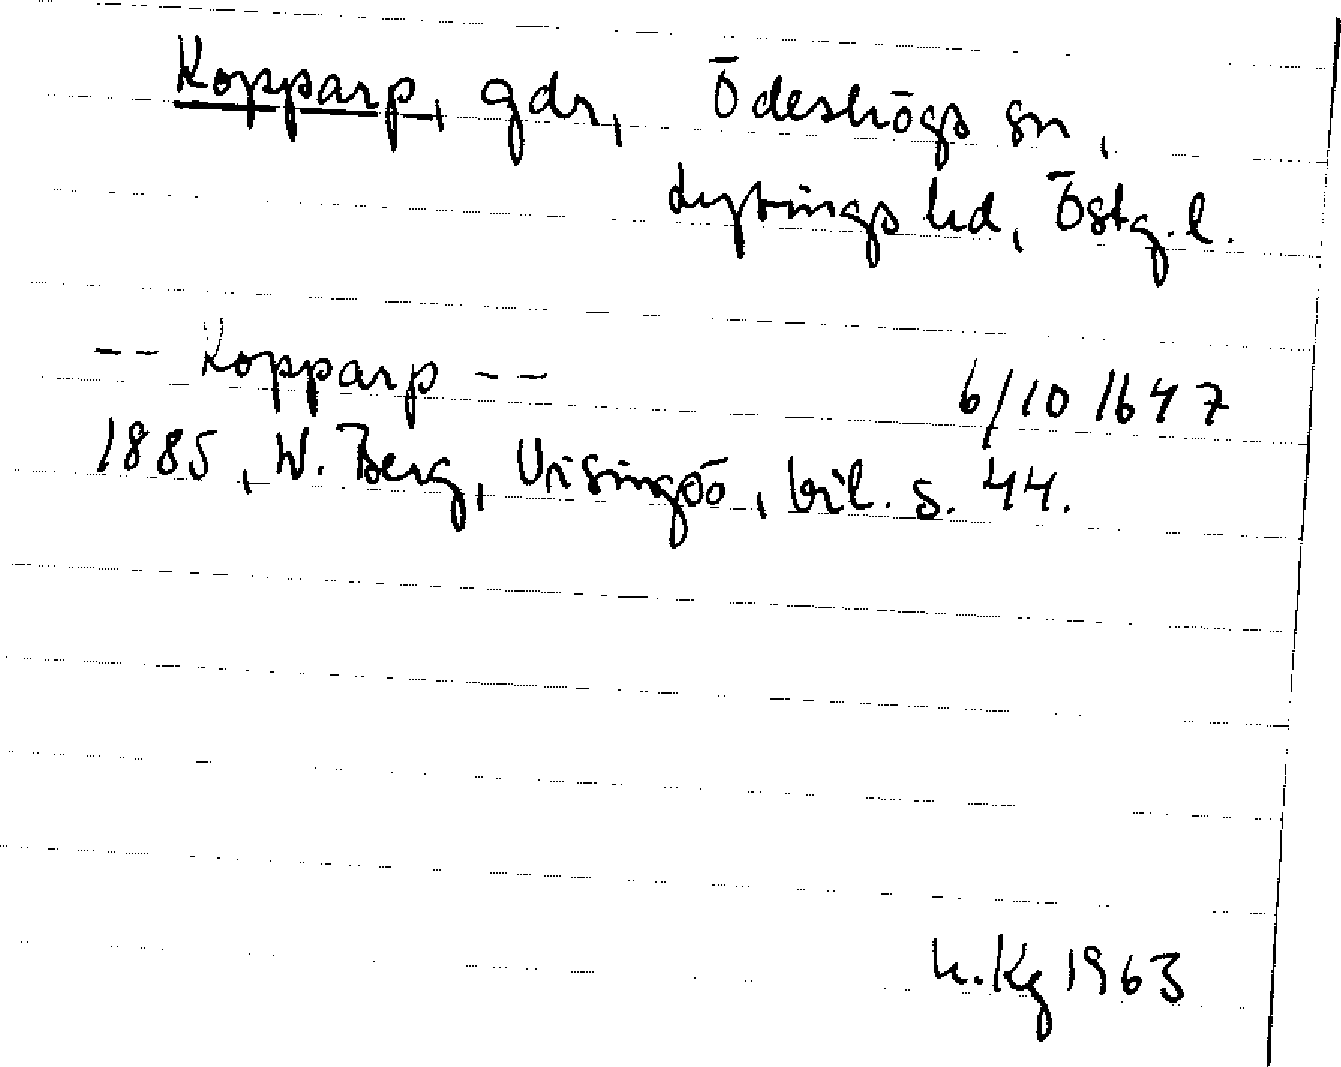 Kopparp, gdr, Ödeshögs sn,
Lysings hd, Östg.l.
-- Kopparp -- 6/10 1647
1885, W. Berg, Visingsö, bil. s. 44.
Kg 1963